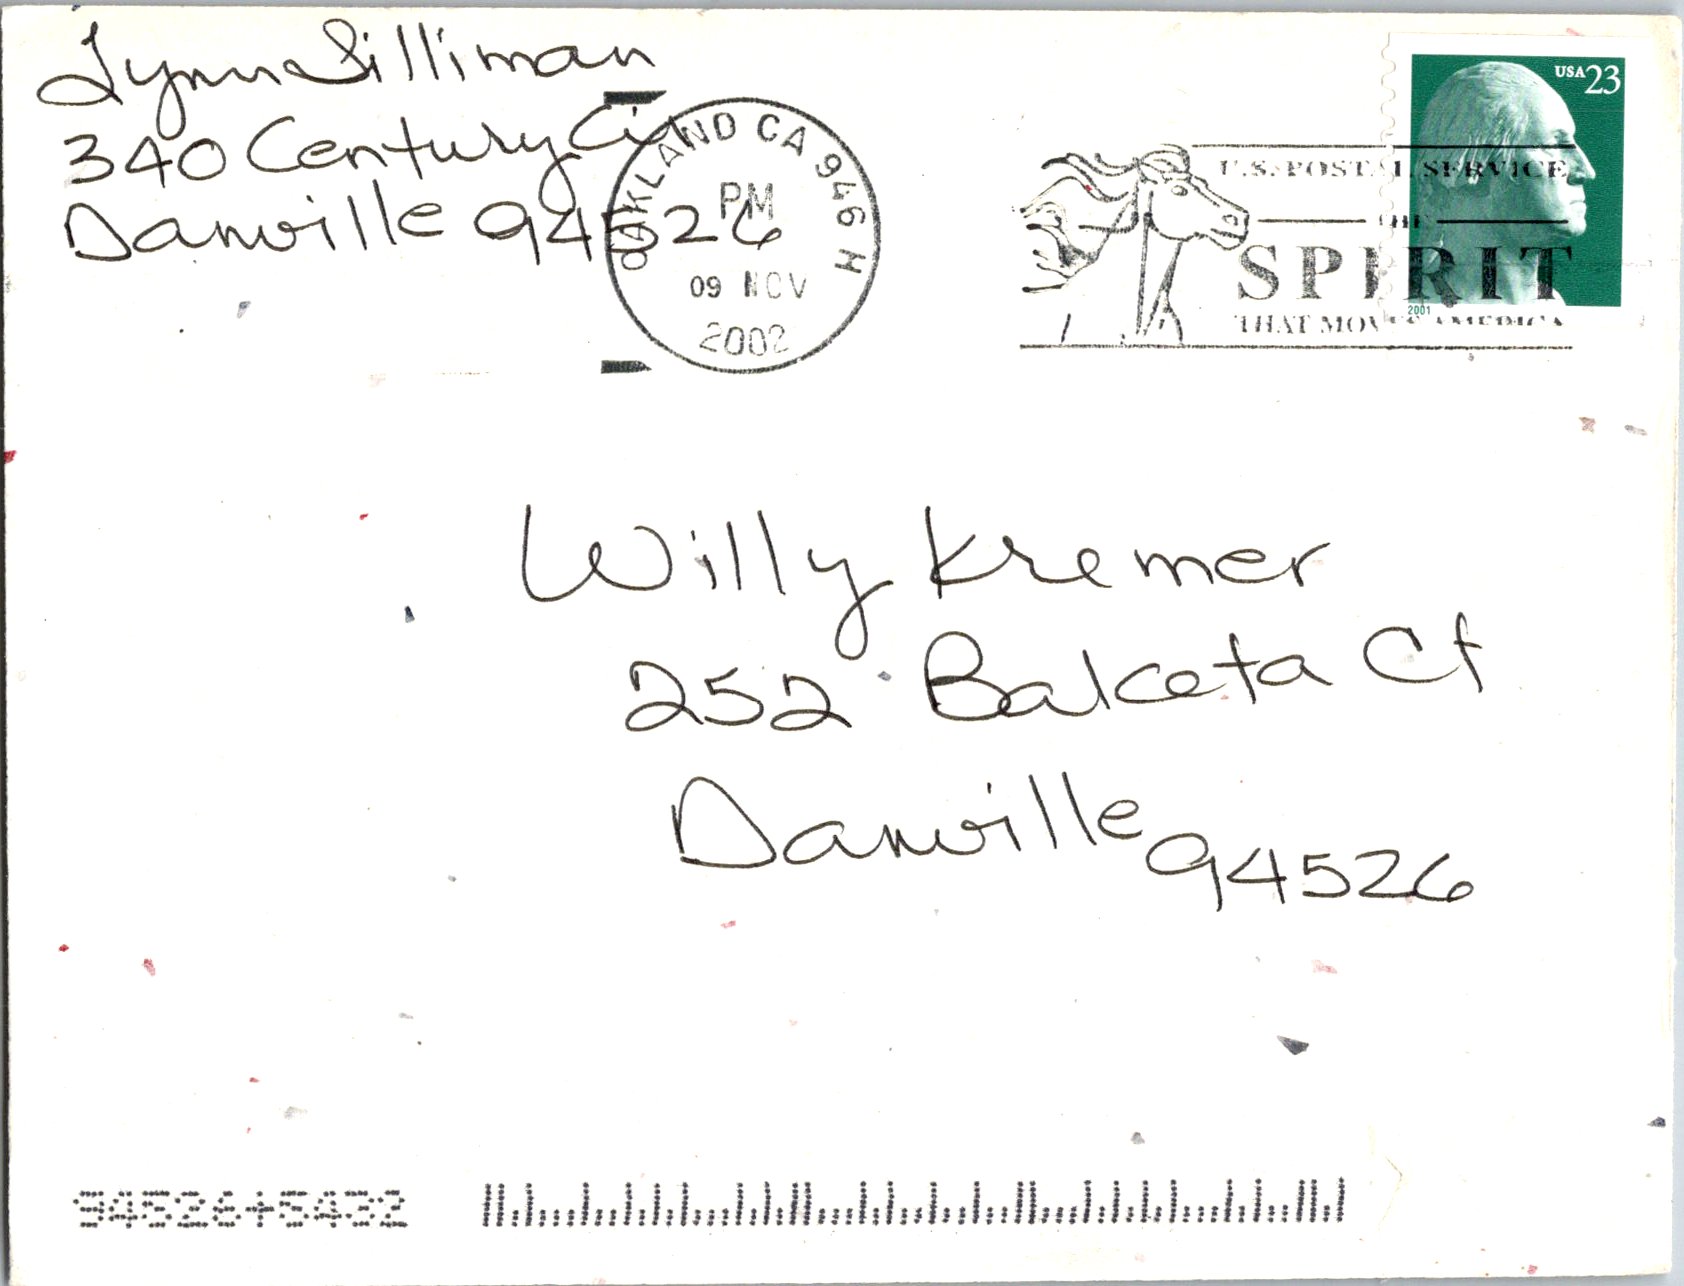 Lynn Silliman
340 Century Cir
Danville 94526
OAKLAND CA 946 H
PM
09 NOV
2002
USA 23
2001
U.S. POSTAL SERVICE
THE
SPIRIT
THAT MOVES AMERICA
Willy Kremer
252 Balceta Ct
Danville 94526
94526+5432